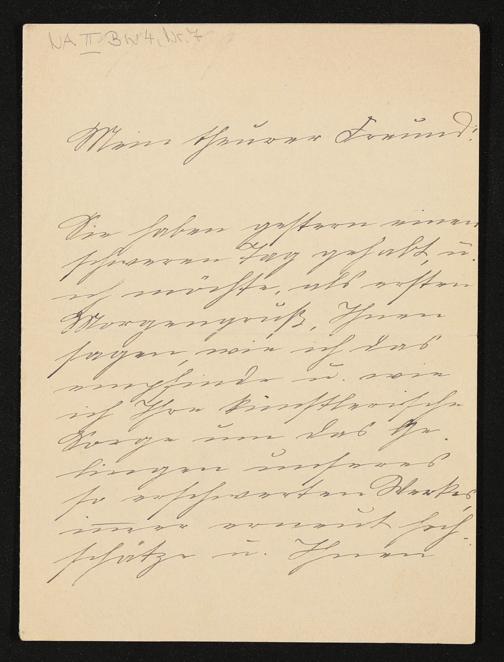 NA II B W 4, Nr. 7
Mein theurer Freund!
Sie haben gestern einen
schweren Tag gehabt, u.
ich möchte, als ersten
Morgengruß, Ihnen
sagen, wie ich das
empfinde u. wie
ich Ihre künstlerische
Sorge um das Ge-
lingen unseres
so erschwerten Werkes
immer erneut hoch-
schätze u. Ihnen